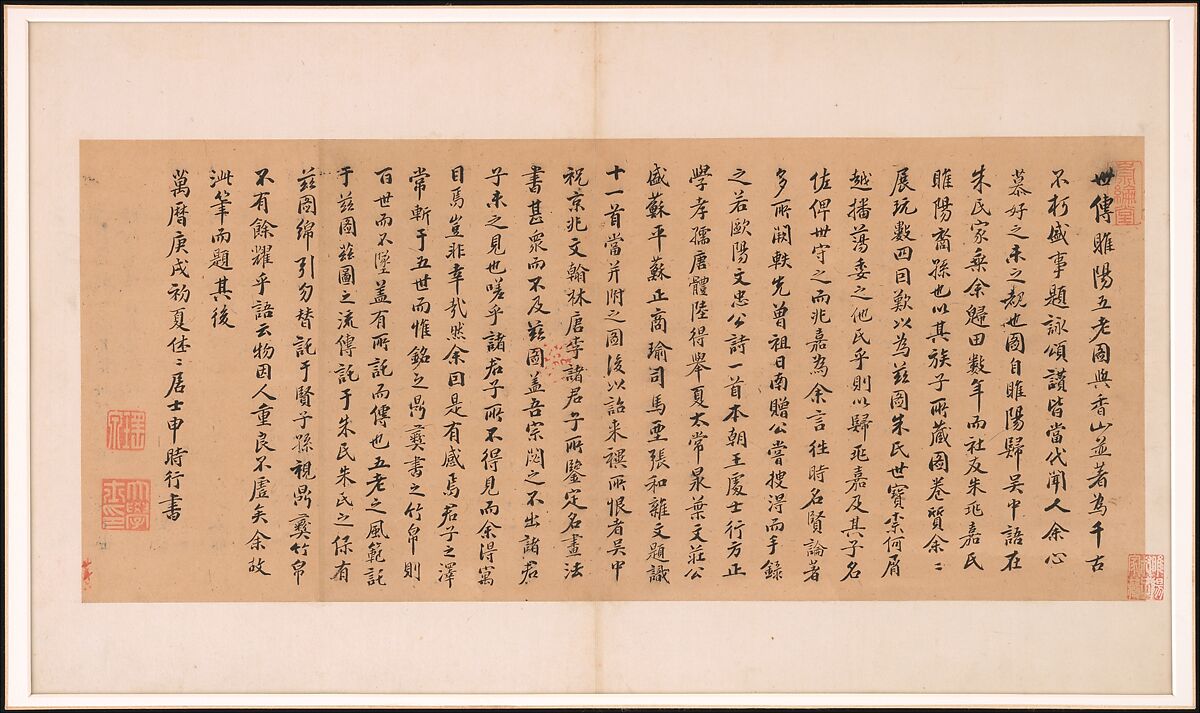 世傳睢陽五老圖與香山並著為千古
不朽盛事題詠頌讚皆當代聞人余心
慕好之未之覩也圖自睢陽歸吳中語在
朱民家乘余歸田數年而社友朱兆嘉氏
睢陽裔孫也以其族子所藏圖卷質余=
展玩數四因歎以為茲圖朱氏世寶奈何屑
越播蕩委之他氏乎則以歸兆嘉及其子名
佐俾世守之而兆嘉為余言徃時名賢論著
多所闕軼先曾祖日南贈公嘗搜得而手錄
之若歐陽文忠公詩一首本朝王處士行方正
學孝孺唐體陸得舉夏太常昶葉文莊公
盛蘇平蘇正商瑜司馬垔張和雜文題識
十一首當并附之圖後以詒来禩所恨者吳中
祝京兆文翰林唐李諸君子所鑒定名畫法
書甚衆而不及茲圖盖吾宗閟之不出諸君
子未之見也嗟乎諸君子所不得見而余得寓
目焉豈非幸哉然余因是有感焉君子之澤
常斬于五世而惟銘之鼎彝書之竹帛則
百世而不墜盖有所託而傳也五老之風範託
于茲圖茲圖之流傳託于朱氏朱氏之保有
茲圖綿引勿替託于賢子孫視鼎彝竹帛
不有餘耀乎語云物因人重良不虛矣余故
泚筆而題其後
萬曆庚戌初夏休=居士申時行書